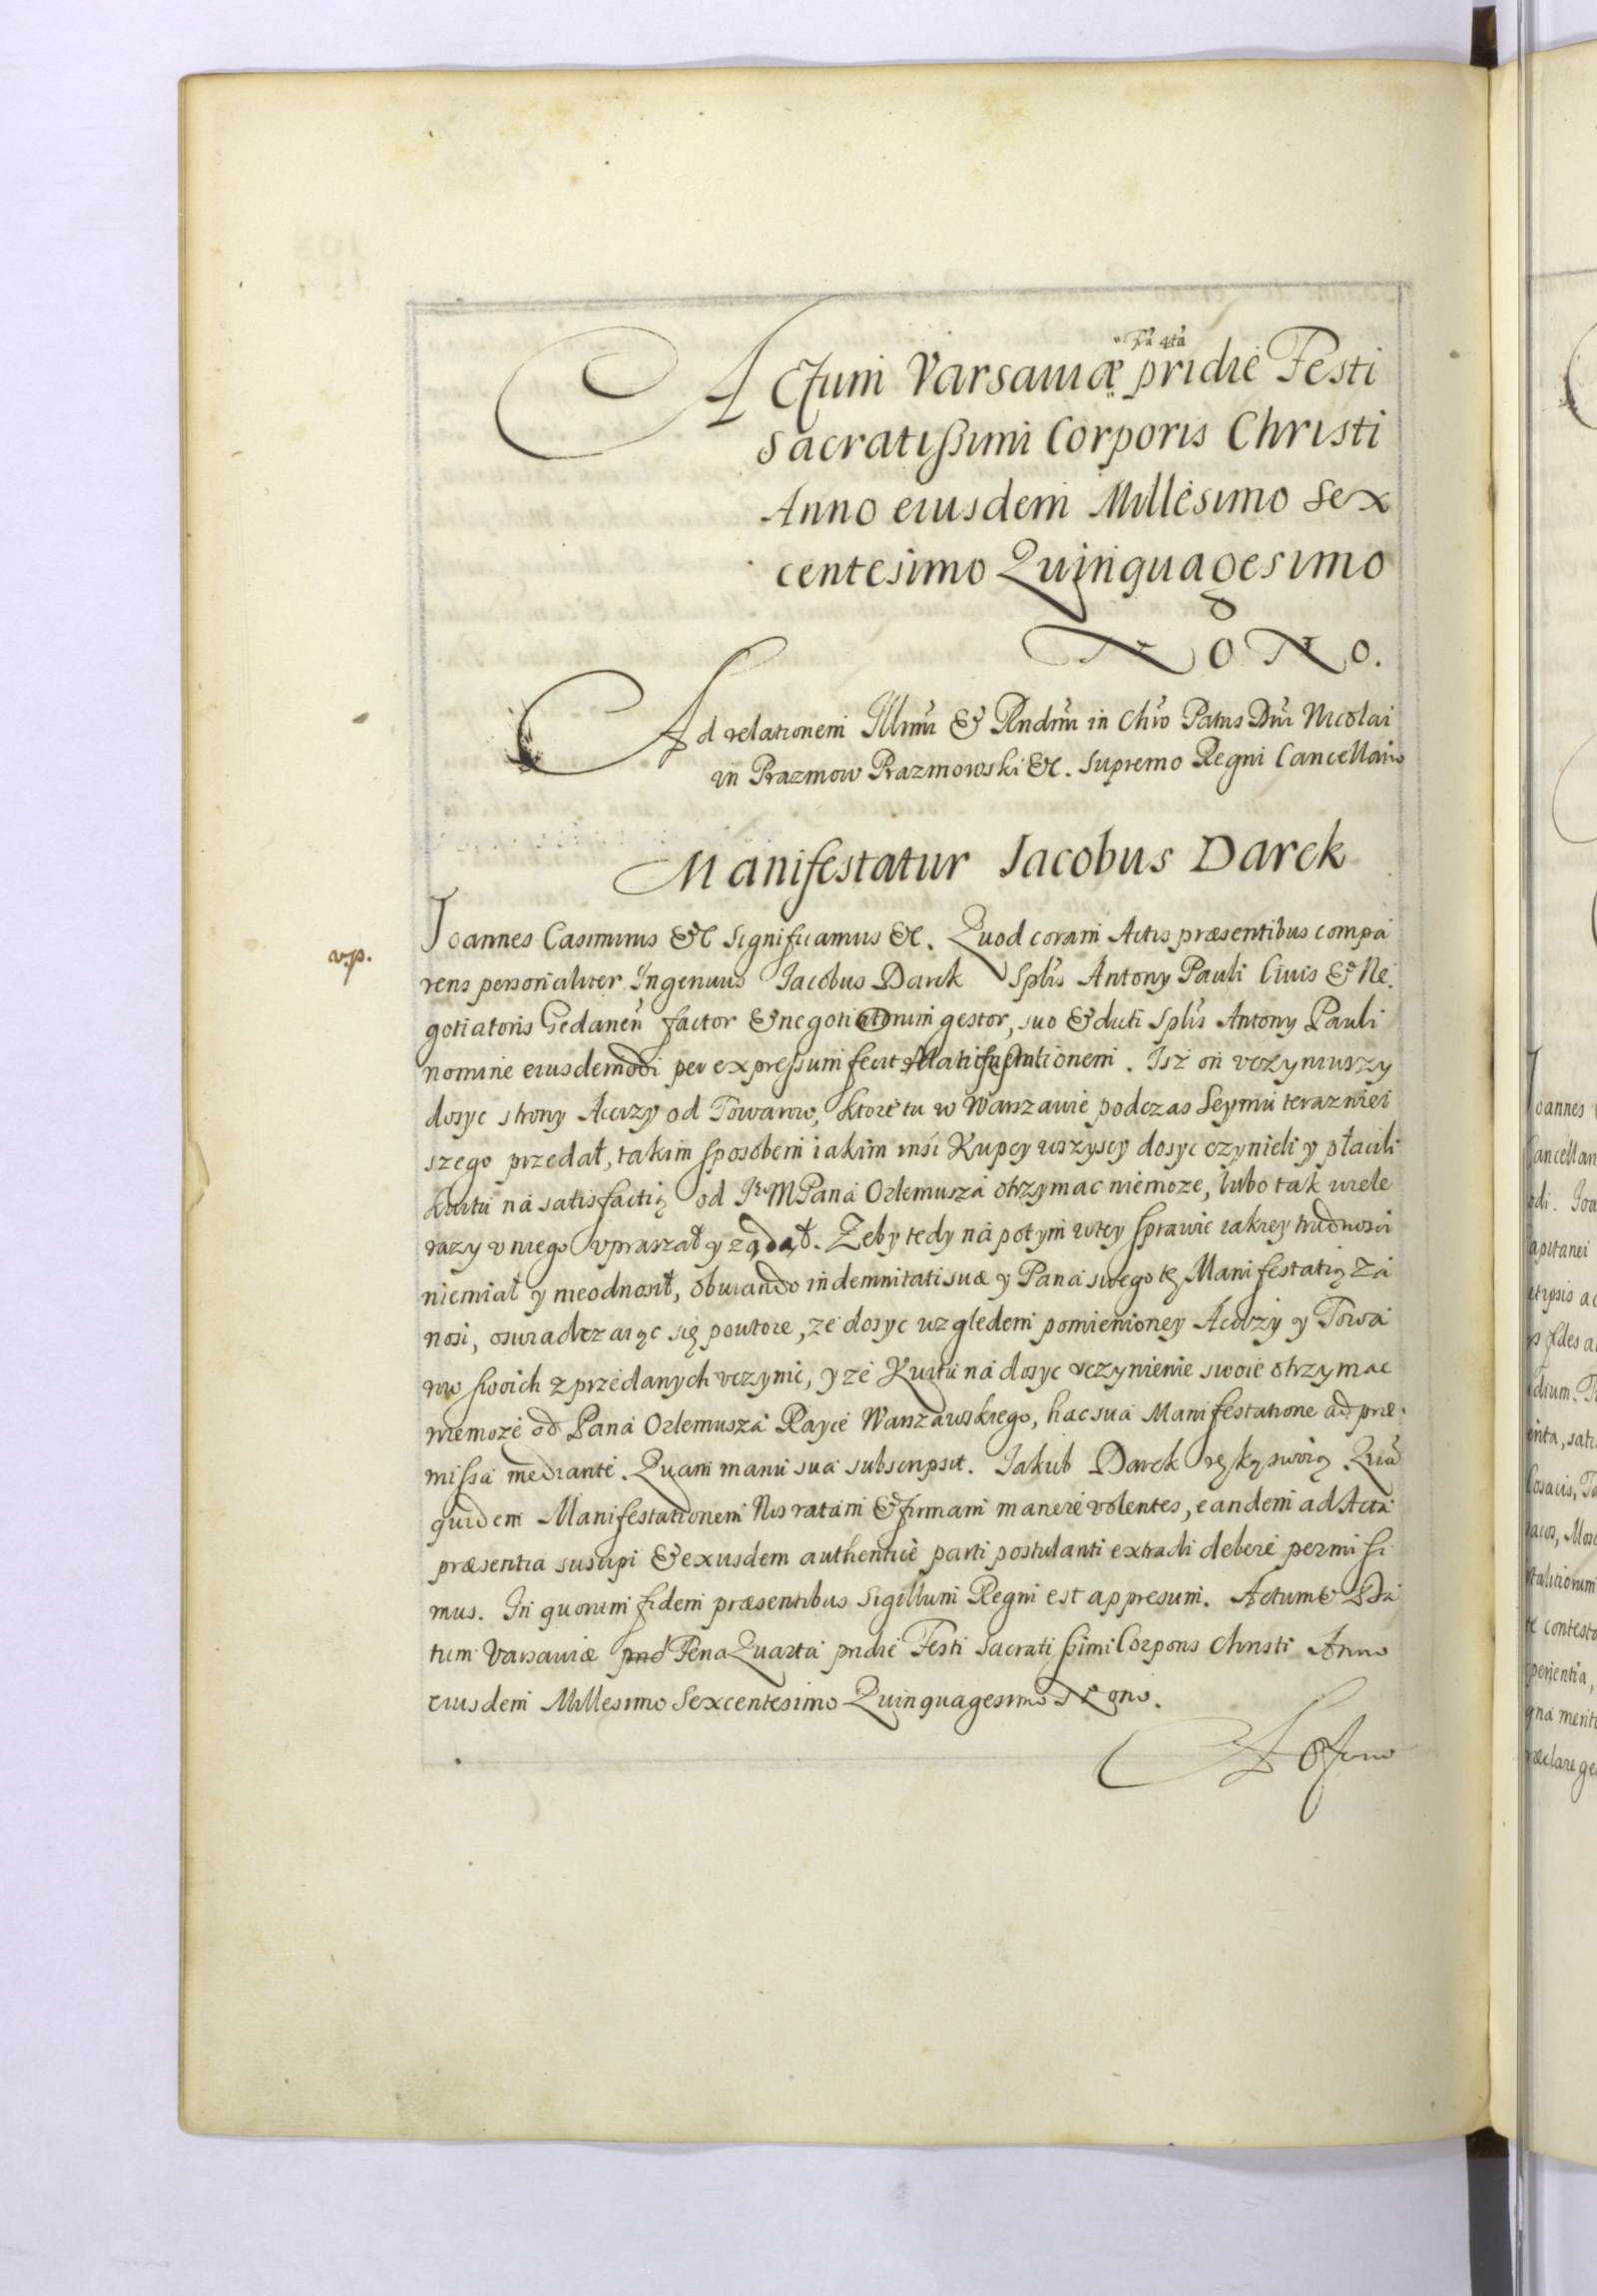 fa 4ta
Actum Varsaviæ pridie Festi
Sacratissimi Corporis Christi
Anno eiusdem Millesimo Sex
centesimo Quinquagesimo
Nono.
Ad relationem Illmi & Rndmi in Chro Patris Dni Nicolai
in Prazmow Prazmowski &c. Supremo Regni Cancellario
Manifestatur Jacobus Darek
Joannes Casimirus &c Significamus &c. Quod coram Actis præsentibus compa
v.p.
rens personaliter Ingenuus Jacobus Darek Splis Antony Pauli Civis & Ne
gotiatoris Gedanen factor & negotiatorum gestor, suo & dicti Splis Antony Pauli
nomine eiusdemodi per expressum fecit Manifestationem. Isz on vczyniwszy
dosyc strony Accizy od Towarow, ktore tu w Warszawie podczas Seymu terazniei
szego przedał, takim sposobem iakim insi Kupcy wszyscy dosyc czynieli y płacili
kwitu na satisfactią od Je° M Pana Orlemusza otrzymac niemoze, lubo tak wiele
razy v niego vpraszał y ządał. Zeby tedy na potym wtey sprawie iakiey trudnosci
niemiał y nieodnosił, obviando indemnitati suæ y Pana swego tę Manifestatią za
nosi, oswiadczaiąc się powtore, ze dosyc wzgledem pomienioney Accizy y Towa
row swoich zprzedanych vczynic, y ze Kwitu na dosyc vczynienie swoie otrzymac
niemoze od Pana Orlemusza Rayce Warszawskiego, hac sua Manifestatione ad præ
missa mediante. Quam manu sua subscripsit. Jakub Darek ręką swoią. Qua
quidem Manifestationem Nos ratam & firmam manere volentes, eandem ad Acta
præsentia suscipi & ex iisdem authentice parti postulanti extradi debere permisi
mus. In quorum fidem præsentibus Sigillum Regni est appresum. Actum & Da
tum Varsaviæ Feria Quarta pridie Festi Sacratissimi Corporis Christi Anno
eiusdem Millesimo Sexcentesimo Quinquagesimo Nono.
Joannes
Cancellar
odi. Joa
apitanei
etipsis ac
drum. Tr
enta, satis
Cosacis, Ta
talitionum
te contesta
perientia,
gna merit
ræclare ge